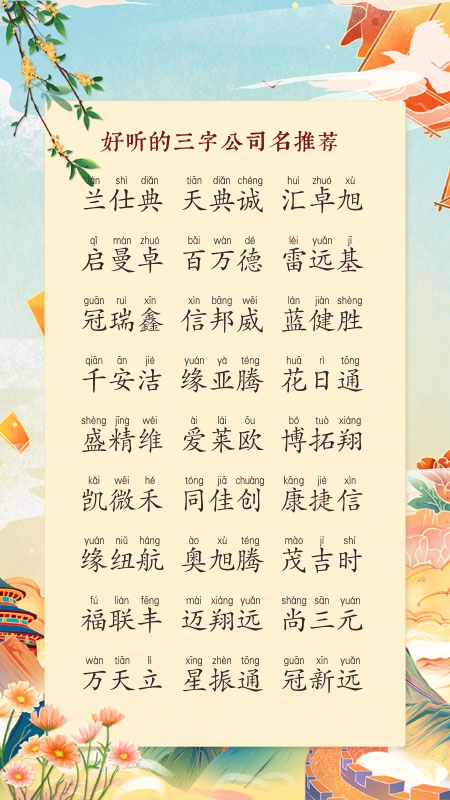 好听的三字公司名推荐
lán shì diǎn tiān diǎn chéng huì zhuó xù
兰仕典 天典诚 汇卓旭
qǐ màn zhuó bǎi wàn dé léi yuǎn jī
启曼卓 百万德 雷远基
guān ruì xīn xìn bāng wēi lán jiàn shèng
冠瑞鑫 信邦威 蓝健胜
qiān ān jié yuán yà téng huā rì tōng
千安洁 缘亚腾 花日通
shèng jīng wéi ài lái ōu bó tuò xiáng
盛精维 爱莱欧 博拓翔
kǎi wēi hé tóng jiā chuàng kāng jié xìn
凯微禾 同佳创 康捷信
yuán niǔ háng ào xù téng mào jí shí
缘纽航 奥旭腾 茂吉时
fú lián fēng mài xiáng yuǎn shàng sān yuán
福联丰 迈翔远 尚三元
wàn tiān lì xīng zhèn tōng guān xīn yuǎn
万天立 星振通 冠新远